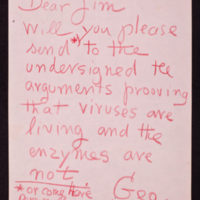 Dear Jim
Will you please
send * to the
undersigned the
arguments prooving
that viruses are
living and the
enzymes are
not
Geo.
* or come have